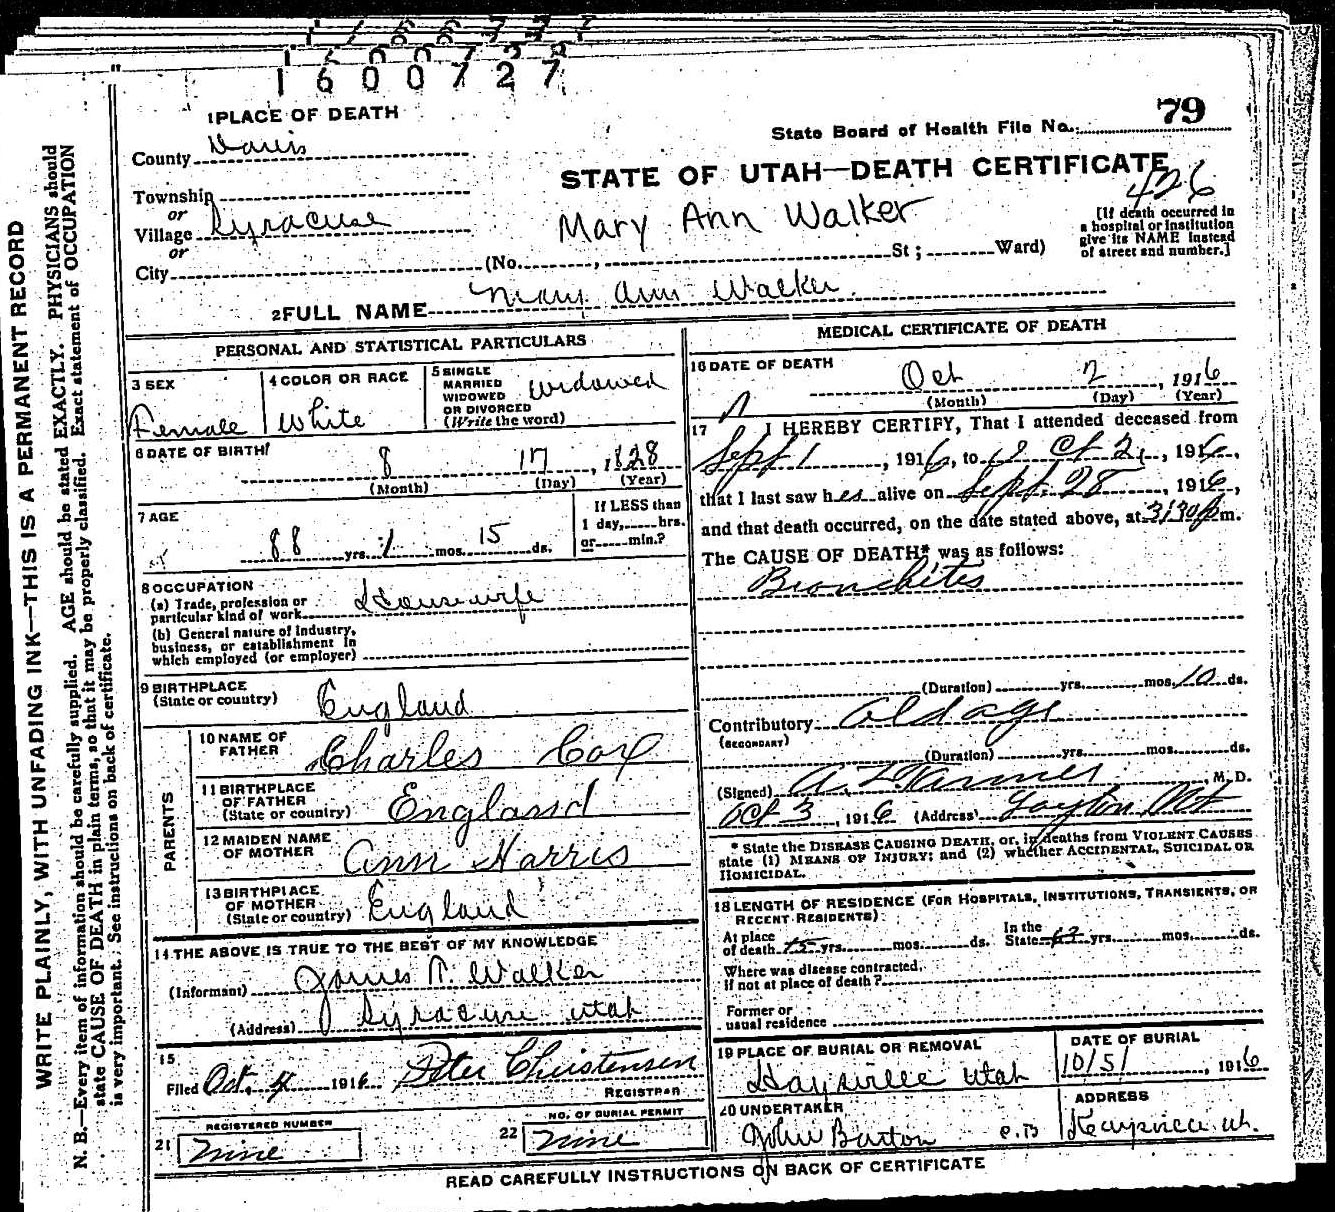 1600727
1 PLACE OF DEATH
State Board of Health File No. 79
County Davis
STATE OF UTAH—DEATH CERTIFICATE
426
Township
or
Village Syracuse
or
City
Mary Ann Walker
(No. , St ; Ward)
[If death occurred in
a hospital or institution
give its NAME instead
of street and number.]
2 FULL NAME Mary Ann Walker.
PERSONAL AND STATISTICAL PARTICULARS
3 SEX
Female
4 COLOR OR RACE
White
5 SINGLE
MARRIED
WIDOWED
OR DIVORCED
(Write the word)
Widowed
6 DATE OF BIRTH
8 17, 1828
(Month) (Day) (Year)
7 AGE
88 yrs. 1 mos. 15 ds.
If LESS than
1 day, hrs.
or min.?
8 OCCUPATION
(a) Trade, profession or
particular kind of work Housewife
(b) General nature of industry,
business, or establishment in
which employed (or employer)
9 BIRTHPLACE
(State or country) England
PARENTS
10 NAME OF
FATHER Charles Cox
11 BIRTHPLACE
OF FATHER
(State or country) England
12 MAIDEN NAME
OF MOTHER Ann Harris
13 BIRTHPLACE
OF MOTHER
(State or country) England
14 THE ABOVE IS TRUE TO THE BEST OF MY KNOWLEDGE
(Informant) James Walker
(Address) Syracuse Utah
15
Filed Oct. 4 1916 Peter Christensen
REGISTRAR
REGISTERED NUMBER
21 Nine
NO. OF BURIAL PERMIT
22 Nine
MEDICAL CERTIFICATE OF DEATH
16 DATE OF DEATH
Oct 2, 1916
(Month) (Day) (Year)
17 I HEREBY CERTIFY, That I attended deceased from
Sept 1, 1916, to Oct 2, 1916,
that I last saw her alive on Sept. 28, 1916,
and that death occurred, on the date stated above, at 3:30 p m.
The CAUSE OF DEATH* was as follows:
Bronchites
(Duration) yrs. mos. 10 ds.
Contributory Old age
(SECONDARY)
(Duration) yrs. mos. ds.
(Signed) M.D.
Oct 3, 1916 (Address) Layton Ut
* State the DISEASE CAUSING DEATH, or, in deaths from VIOLENT CAUSES
state (1) MEANS OF INJURY; and (2) whether ACCIDENTAL, SUICIDAL OR
HOMICIDAL.
18 LENGTH OF RESIDENCE (FOR HOSPITALS, INSTITUTIONS, TRANSIENTS, OR
RECENT RESIDENTS)
At place
of death 15 yrs. mos. ds.
In the
State 63 yrs. mos. ds.
Where was disease contracted,
if not at place of death?
Former or
usual residence
19 PLACE OF BURIAL OR REMOVAL
Kaysville Utah
DATE OF BURIAL
10/5/, 1916
20 UNDERTAKER
John Barton
ADDRESS
Kaysville Ut.
READ CAREFULLY INSTRUCTIONS ON BACK OF CERTIFICATE
WRITE PLAINLY, WITH UNFADING INK—THIS IS A PERMANENT RECORD
N. B.—Every item of information should be carefully supplied. AGE should be stated EXACTLY. PHYSICIANS should
state CAUSE OF DEATH in plain terms, so that it may be properly classified. Exact statement of OCCUPATION
is very important. See instructions on back of certificate.